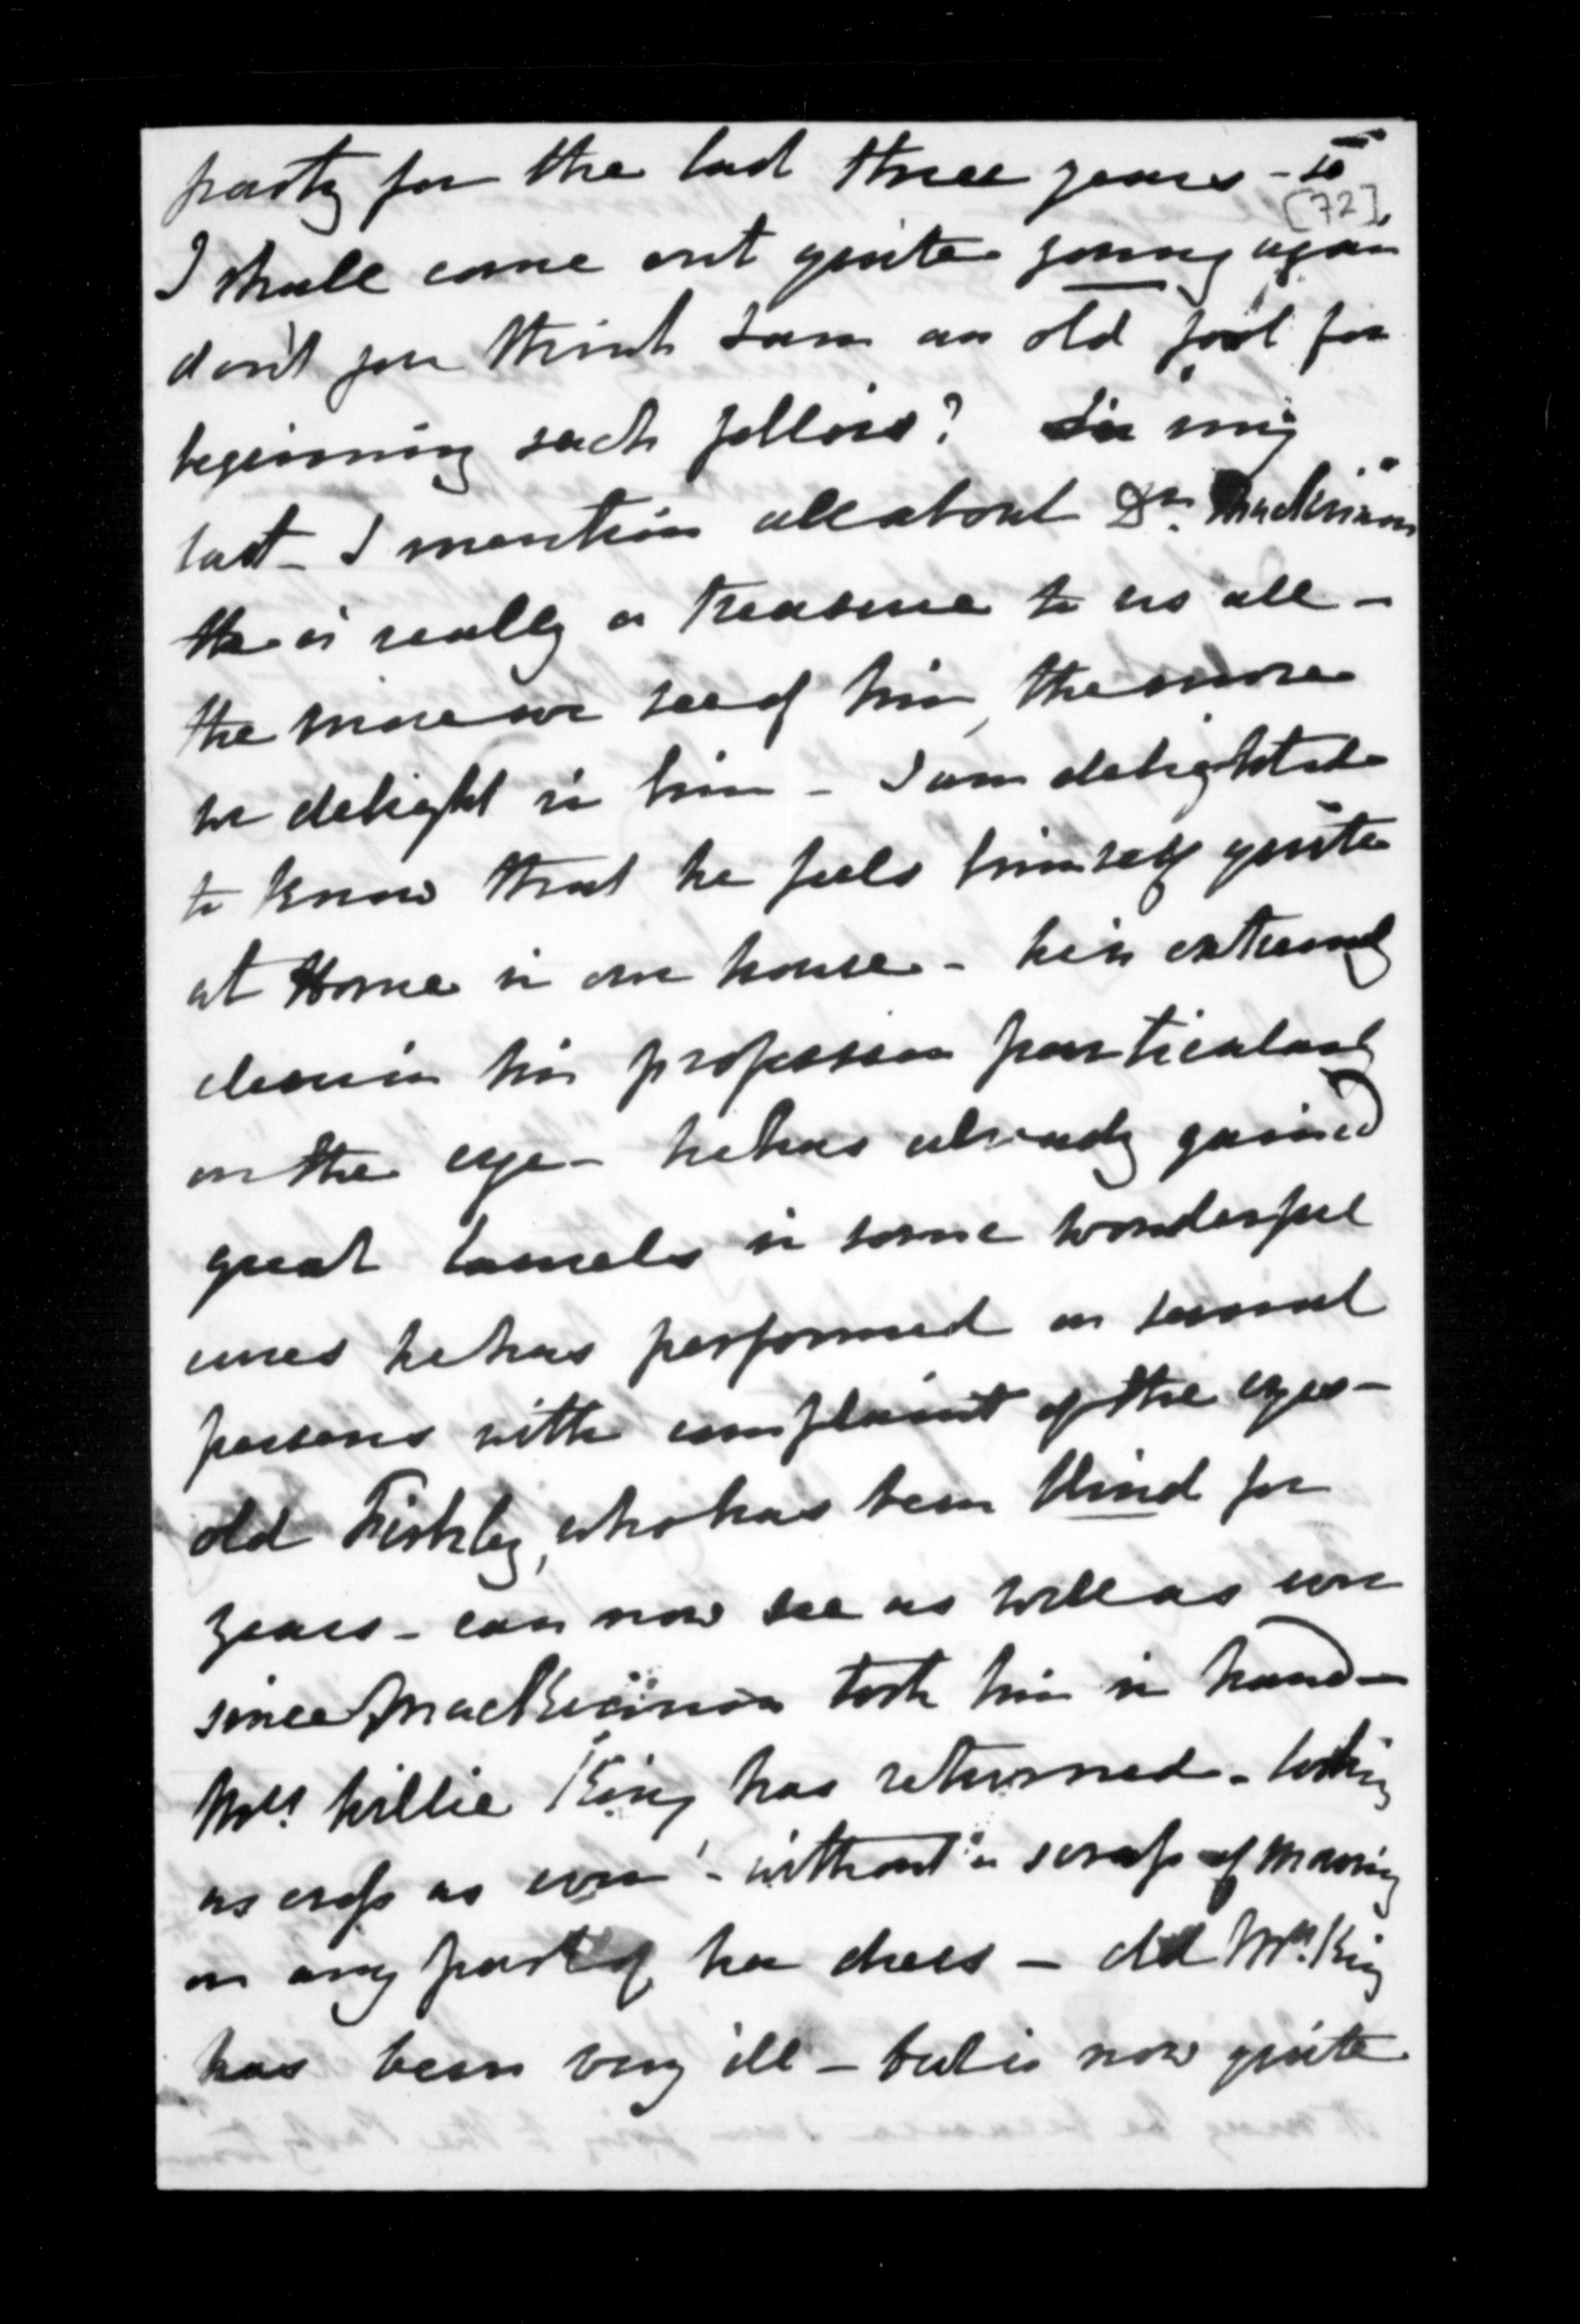 party for the last three years - so
[72]
I shall come out quite young again
don't you think I am an old fool for
beginning such follies? In my
last - I mention all about Dr. MacKinnon
He is really a treasure to us all -
the more we see of him, the more
we delight in him - I am delighted
to know that he feels himself quite
at Home in our house - he is extremely
clever in his profession particularly
on the eye - he has already gained
great laurels in some wonderful
cures he has performed on several
persons with complaint of the eyes -
old who has been blind for
years - can now see as well as ever
since MacKinnon took him in hand -
Mrs. Willie King has returned - looking
as cross as ever - without a scrap of mourning
on any part of her dress - old Mrs. King
has been very ill - but is now quite